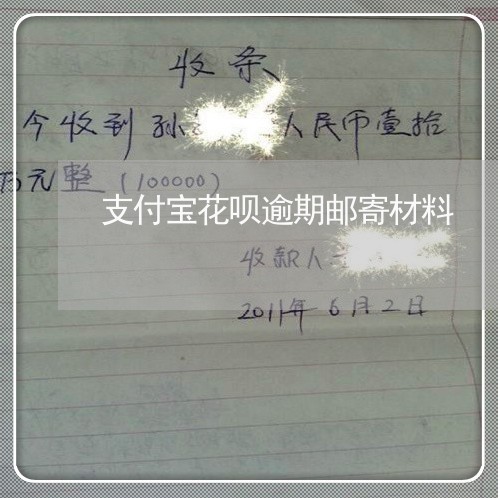 收条
今收到孙 人民币壹拾
万元整(100000)
支付宝花呗逾期邮寄材料
收款人
2011年6月2日